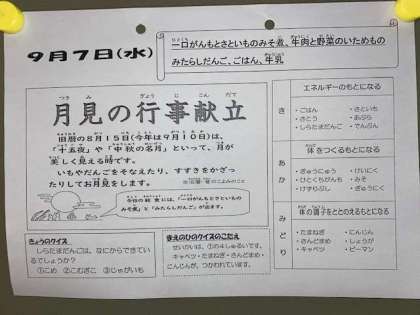 9月7日(水)
一口がんもとさといものみそ煮、牛肉と野菜のいためもの
みたらしだんご、ごはん、牛乳
月見の行事献立
旧暦の8月15日(今年は9月10日)は、
「十五夜」や「中秋の名月」といって、月が
美しく見える時です。
いもやだんごをそなえたり、すすきをかざっ
たりしてお月見をします。
今日の給食には、「一口がんもとさといもの
みそ煮」と「みたらしだんご」が出ます。
きょうのクイズ
しらたまだんごは、なにからできてい
るでしょうか?
①こめ ②こむぎこ ③じゃがいも
きえのひのクイズのこたえ
せいかいは、①の4しゅるいです。
キャベツ・たまねぎ・さんどまめ・
にんじんが、つかわれています。
き
エネルギーのもとになる
・ごはん ・さといも
・さとう ・あぶら
・しらたまだんご ・でんぷん
あか
体をつくるもとになる
・ぎゅうにゅう ・けいにく
・ひとくちがんも ・みそ
・けずりぶし ・ぎゅうにく
みどり
体の調子をととのえるもとになる
・たまねぎ ・にんじん
・さんどまめ ・しょうが
・キャベツ ・ピーマン